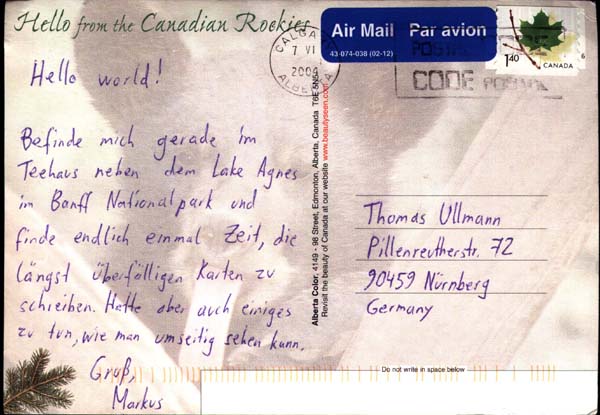 Hello from the Canadian Rockies
Hello world!
Befinde mich gerade im
Teehaus neben dem Lake Agnes
im Banff Nationalpark und
finde endlich einmal Zeit, die
längst überfälligen Karten zu
schreiben. Hatte aber auch einiges
zu tun, wie man umseitig sehen kann.
Gruß,
Markus
Alberta Color, 4149 - 98 Street, Edmonton, Alberta, Canada T6E 5N5
Revisit the beauty of Canada at our website www.beautyseen.com
Air Mail Par avion
43 074-038 (02-12)
CALGARY
7 VI
ALBERTA
POSTAL
CODE POSTAL
1.40
CANADA
Thomas Ullmann
Pillenreutherstr. 72
90459 Nürnberg
Germany
Do not write in space below